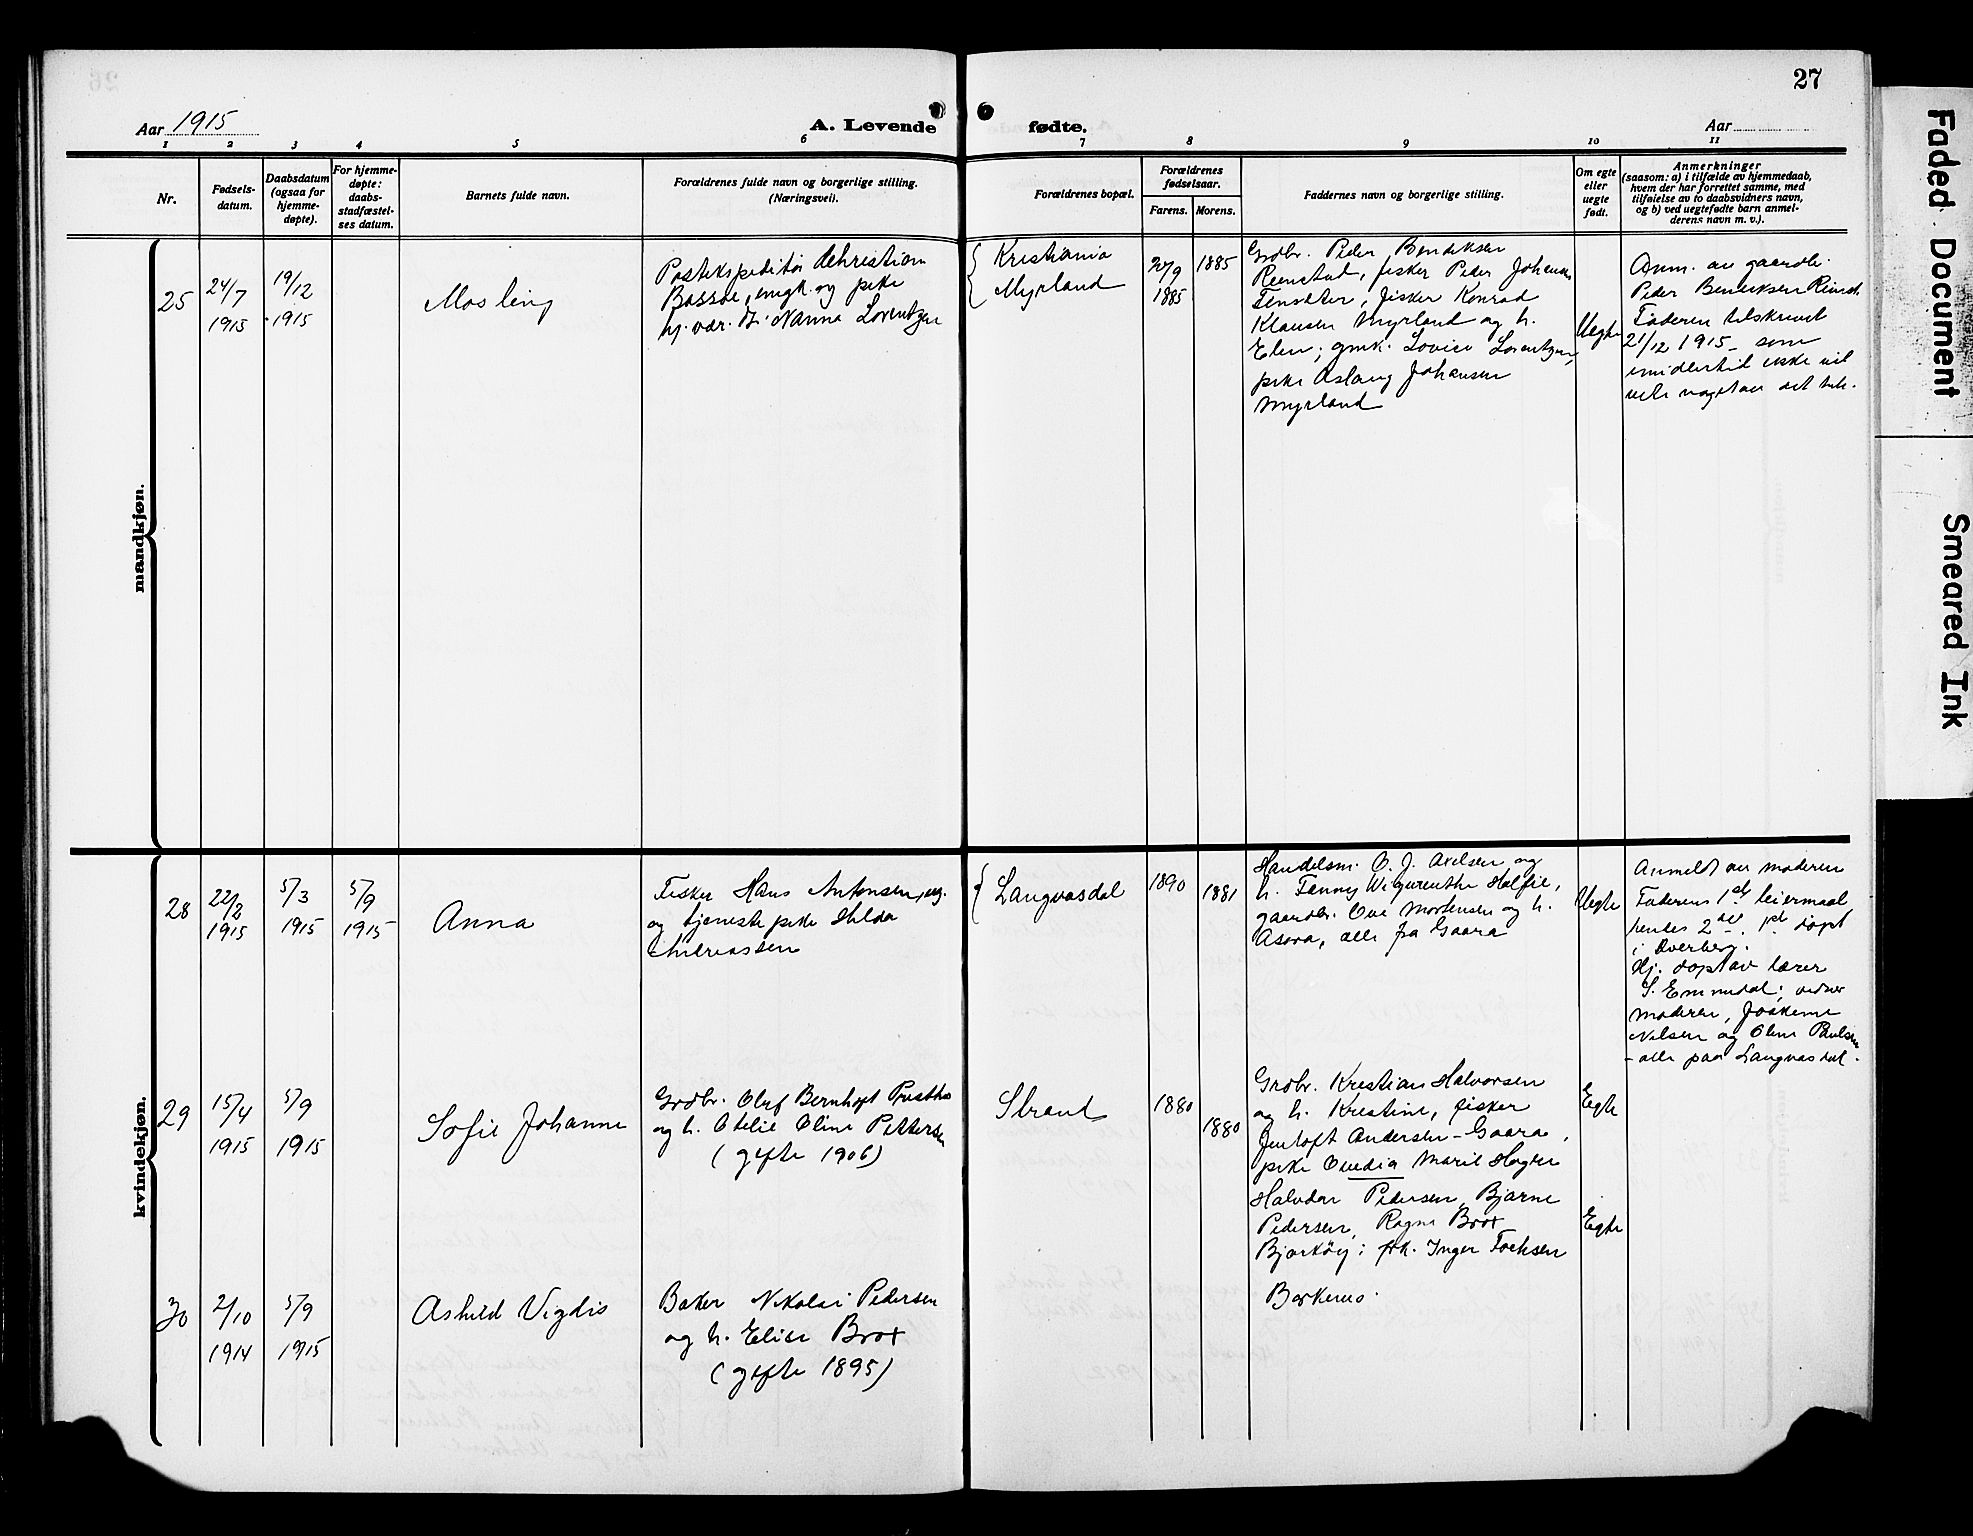 27
Aar 1915
A. Levende
fødte.
Aar
1 2 3 4 5 6 7 8 9 10 11
Nr.
Fødsels-
datum.
Daabsdatum
(ogsaa for
hjemme-
døpte).
For hjemme-
døpte:
daabs-
stadfæstel-
ses datum.
Barnets fulde navn.
Forældrenes fulde navn og borgerlige stilling.
(Næringsvei).
Forældrenes bopæl.
Forældrenes
fødselsaar.
Farens. Morens.
Faddernes navn og borgerlige stilling.
Om egte
eller
uegte
født.
Anmerkninger
(saasom: a) i tilfælde av hjemmedaab,
hvem der har forrettet samme, med
tilføielse av to daabsvidners navn,
og b) ved uegtefødte barn anmel-
derens navn m. v.).
mandkjøn.
25
24/7
1915
19/12
1915
Postekspeditør
Bassøe, ungk. og pike
hj. vær. Nanna Lorentzen
Kristiania
Myrland
27/9
1885
1885
Grdbr. Peder Bendiksen
Reinstad, fisker Peder Johansen
fisker Konrad
Klausen Myrland og h.
Elen; gmk. Lovise Lorentzen,
pike Aslaug Johansen
Myrland
Uegte
Anm. av gaardbr.
Peder Bendiksen Reinst.
Faderen tilskrevet
21/12 1915 - som
imidlertid ikke vil
vite noget av det
kvindekjøn.
28
22/2
1915
5/3
1915
5/9
1915
Anna
Fisker Hans Antonsen, ug.
og tjenestepike Hilda
Andreassen
Langvasdal
1890
1881
Handelsm. O. J. Axelsen og
h. Fanny
gaardbr. Ove Mortensen og h.
Asora, alle fra Gaara
Uegte
Anmeldt av moderen
Faderens 1ste leiermaal
hendes 2det. 1ste døpt
i Dverberg.
Hj. døpt av lærer
S. Emmedal; vidner
moderen, Joakime
Nilsen og Oline Paulsen
- alle paa Langvasdal.
29
15/4
1915
5/9
1915
Sofie Johanne
Grdbr. Oluf Bernhoft
og h. Otelie Oline Pettersen
(gifte 1906)
Strand
1880
1880
Grdbr. Kristian Halvorsen
og h. Kristine, fisker
Jentoft Andersen - Gaara,
pike Ovedia Marie Hagen
Egte
30
2/10
1914
5/9
1915
Ashild Vigdis
Baker Nikolai Pedersen
og h. Elise Brox
(gifte 1895)
Halvdan Pedersen, Bjarne
Pedersen, Ragna Brox
Bjarkøy; frk. Inger
Egte
Faded Document
Smeared Ink